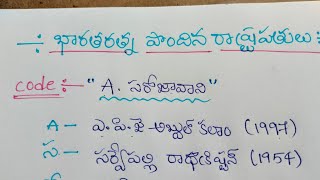 ÷ భారతరత్న పొందిన రాష్ట్రపతులు :
code :- " A. సరోజావాని "
A - ఎ. పి. జె అబ్దుల్ కలాం (1997)
స - సర్వేపల్లి రాధాకిషన్ (1954)